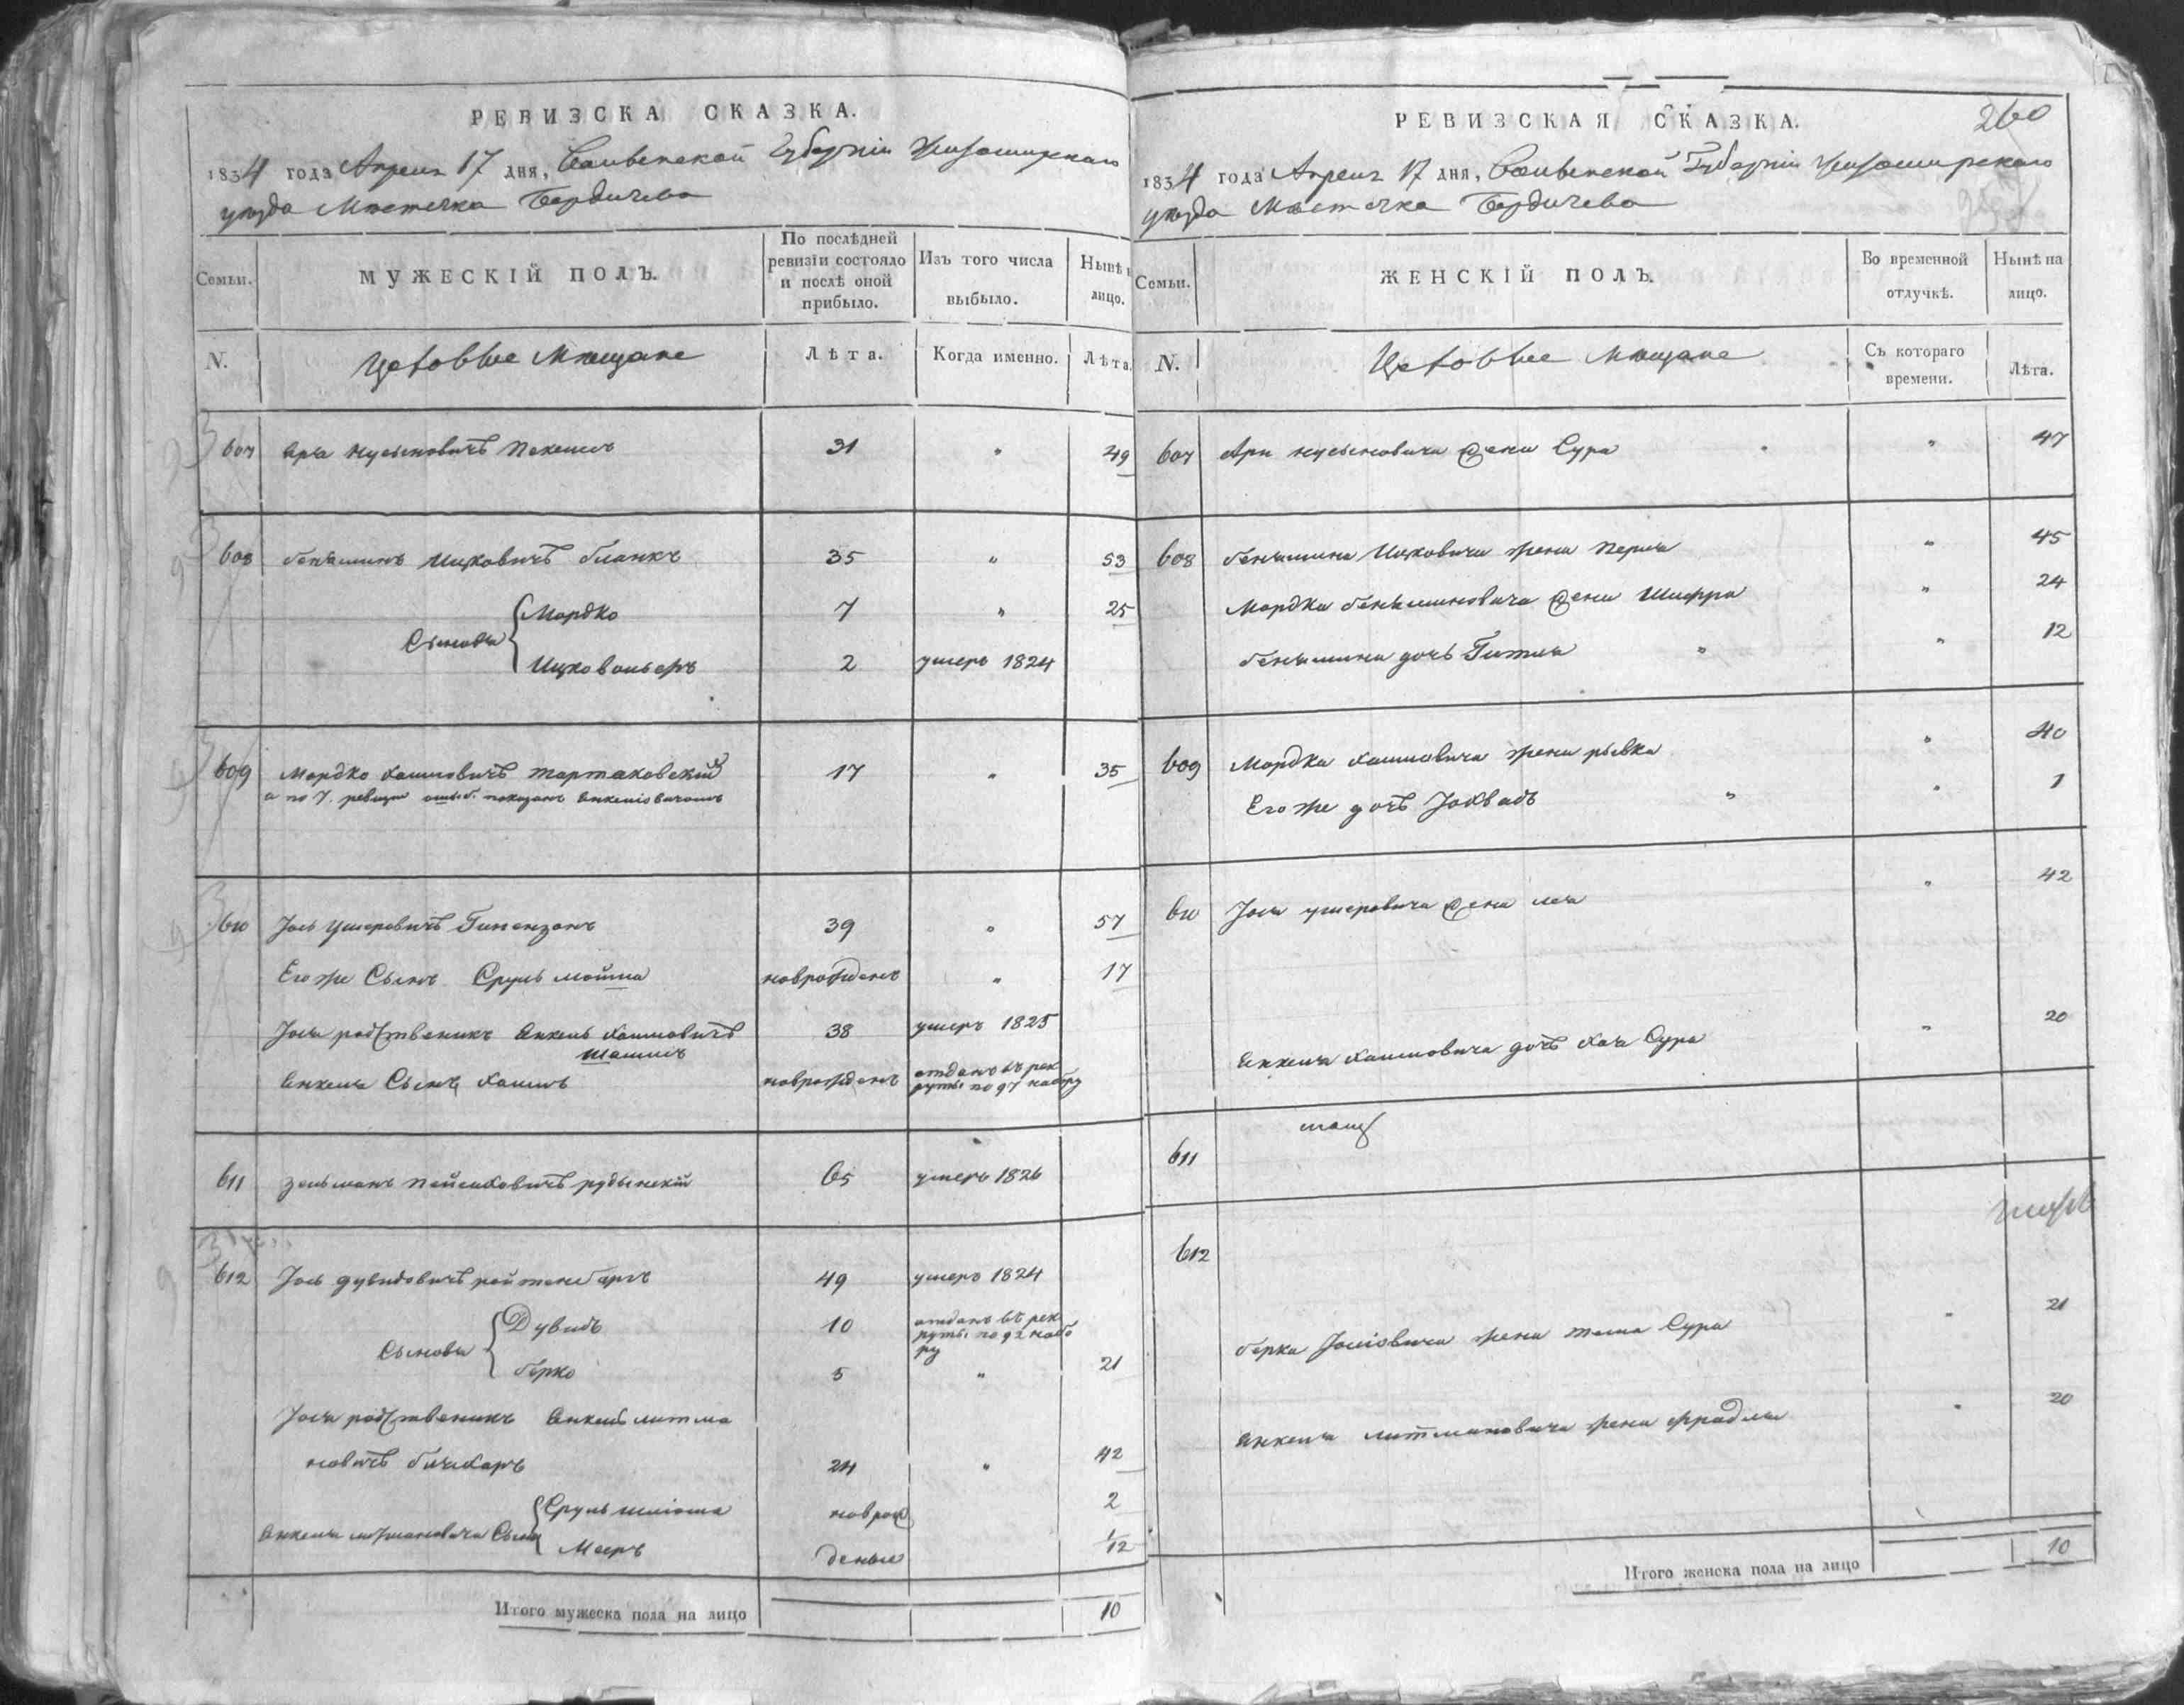 РЕВИЗСКА СКАЗКА.
1834 года Апреля 17 дня, Волынской Губернiи Житомирскаго
уѣзда Мѣстечка Бердичева
Семьи.
МУЖЕСКІЙ ПОЛЪ.
По послѣдней ревизіи состояло и послѣ оной прибыло.
Изъ того числа выбыло.
Нынѣ лицо.
N.
Цеховые Мѣщане
Лѣта.
Когда именно.
Лѣта.
607 Аря Нусыновичъ 31 " 49
608 Беньяминъ Ицковичъ Бланкъ 35 " 53
Сыновья
Мордко 7 " 25
Ицко Вольфъ 2 умеръ 1824
609 Мордко Хаимовичъ Тартаковскій 17 " 35
а по 7. ревизіи ошиб. показанъ Янкеліовичомъ
610 Іось Ушеровичъ Гипензонъ 39 " 57
Его же Сынъ Сруль мойша новрожденъ " 17
Іося родственикъ Янкель Хаимовичъ 38 умеръ 1825
Янкеля Сынъ Хаимъ новрожденъ отданъ въ рекруты по 97 набору
611 Зельманъ Пейсаховичъ рудынскій 65 умеръ 1826
612 Іось дувидовичъ ройтенбаргъ 49 умеръ 1824
Сыновья
Дувидъ 10 отданъ въ рекруты по 92 набору
берко 5 " 21
Іося родственикъ Янкель литма
новичъ блихаръ 24 " 42
Янкеля литмановича Сыны
Сруль шліома новрож 2
Мееръ деные 1/12
Итого мужеска пола на лицо 10
РЕВИЗСКАЯ СКАЗКА.
260
1834 года Апреля 17 дня, Волынской Губернiи Житомирскаго
уѣзда Мѣстечка Бердичева
Семьи.
ЖЕНСКІЙ ПОЛЪ.
Во временной отлучкѣ.
Нынѣ на лицо.
N.
Цеховые Мѣщане
Съ котораго времени.
Лѣта.
607 Ари нусыновича жена Сура " 47
608 беньямина Ицковича жена Перля " 45
Мордка беньяминовича жена Шифра " 24
беньямина дочь Гитля " " 12
609 Мордка Хаимовича жена рывка " 40
Его же дочь Іохвадъ " " 1
610 Іося ушеровича жена лея " 42
Янкеля Хаимовича дочъ Хая Сура " 20
611
612
берка Іосіовича жена Сура " 21
Янкеля литмановича жена фрадля " 20
Итого женска пола на лицо 10